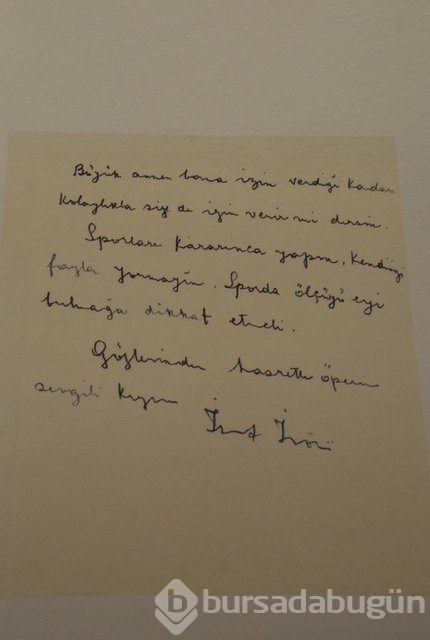 Büyük annen bana izin verdiği kadar
kolaylıkla size de izin verir mi dersin.
Sporları kararınca yapın, kendinizi
fazla yormayın. Sporda ölçüyü iyi
bulmağa dikkat etmeli.
Gözlerinden hasretle öperim
sevgili kızım
İsmet İnönü
bursadabugün